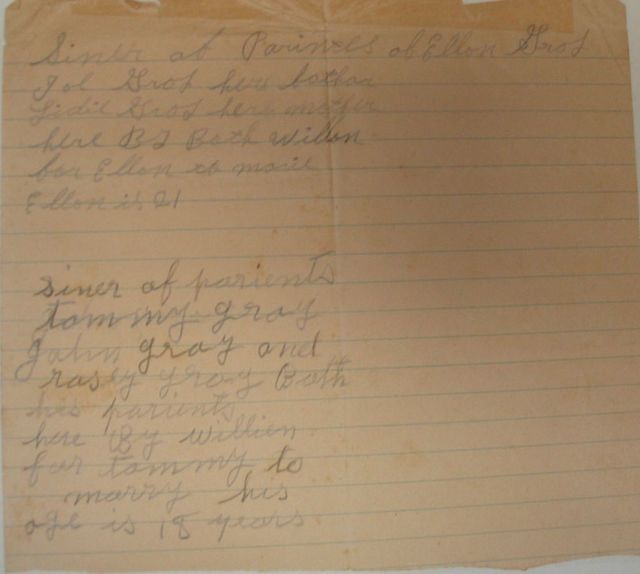 Siner of Parints of Ellon Grof
Joe Grof here bother
Lidie Grof here mother
here By Both Willen
for Ellon to marie
Ellon is 21
siner of parients
tommy gray
John gray and
rosey gray Both
his parients
here By willien
for tommy to
marry his
age is 18 years